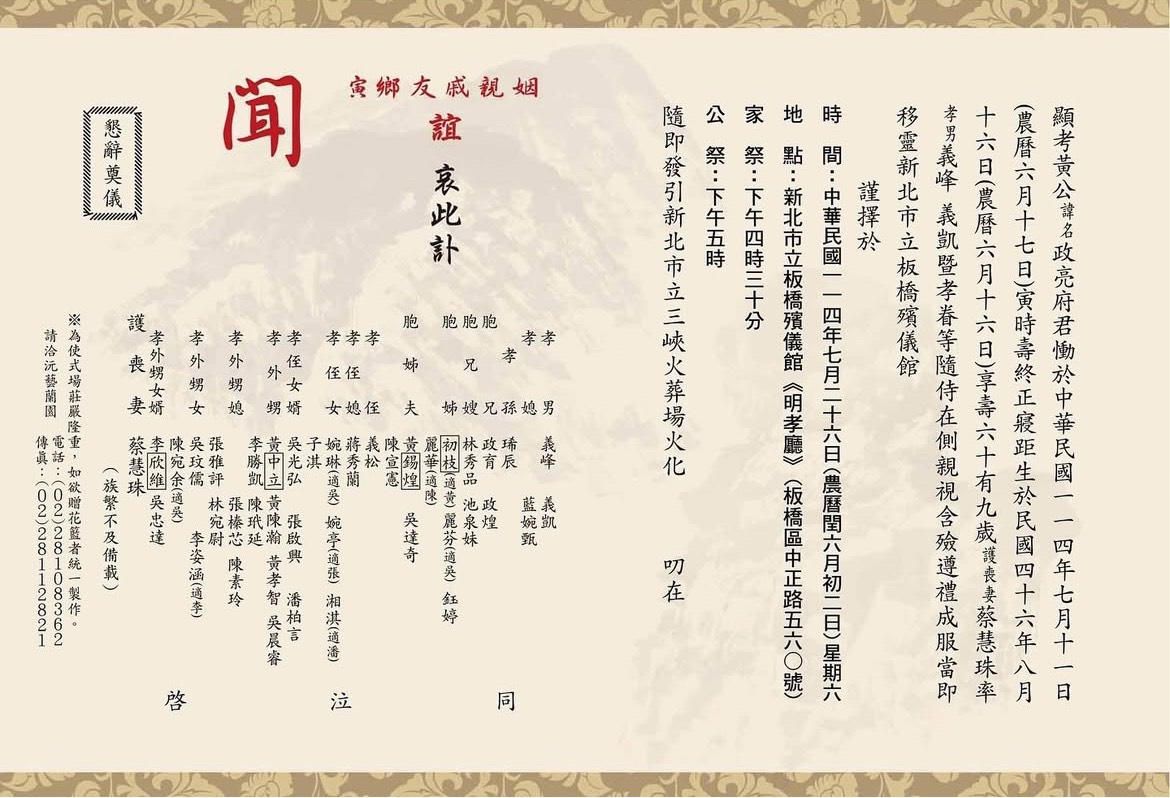 顯考黃公諱名政亮府君慟於中華民國一一四年七月十一日
(農曆六月十七日)寅時壽終正寢距生於民國四十六年八月
十六日(農曆六月十六日)享壽六十有九歲護喪妻蔡慧珠率
孝男義峰 義凱暨孝眷等隨侍在側親視含殮遵禮成服當即
移靈新北市立板橋殯儀館
謹擇於
時 間：中華民國一一四年七月二十六日(農曆閏六月初二日)星期六
地 點：新北市立板橋殯儀館《明孝廳》(板橋區中正路五六〇號)
家 祭：下午四時三十分
公 祭：下午五時
隨即發引新北市立三峽火葬場火化 叨在
姻親戚友鄉寅
誼 哀此訃
聞
孝男 義峰 義凱
孝媳 藍婉甄
孝孫 琋辰
胞兄 政育 政煌
胞兄嫂 林秀品 池泉妹
胞姊 初枝(適黃) 麗芬(適吳) 鈺婷
麗華(適陳)
胞姊夫 黃錫煌 吳達奇
陳宣憲
孝侄 義松
孝侄媳 蔣秀蘭
孝侄女 婉琳(適吳) 婉亭(適張) 湘淇(適潘)
子淇
孝侄女婿 吳光弘 張啟興 潘柏言
孝外甥 黃中立 黃陳瀚 黃孝智 吳晨睿
李勝凱 陳玳延
孝外甥媳 張榛芯 陳素玲
張雅評 林宛尉
孝外甥女 吳玟儒 李姿涵(適李)
陳宛余(適吳)
孝外甥女婿 李欣維 吳忠達
護喪妻 蔡慧珠
(族繁不及備載)
同 泣 啓
懇辭奠儀
※為使式場莊嚴隆重，如欲贈花籃者統一製作。
請洽沅藝蘭園 電話：(02)28108362
傳真：(02)28112821